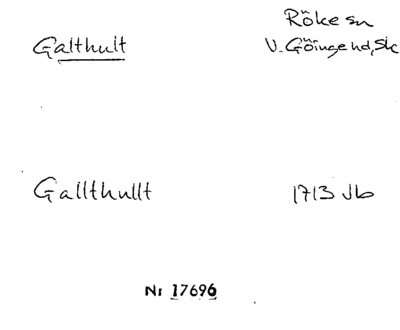 Röke sn
Galthult V. Göinge hd, Sk
Gallthullt 1713 Jb
Nr 17696